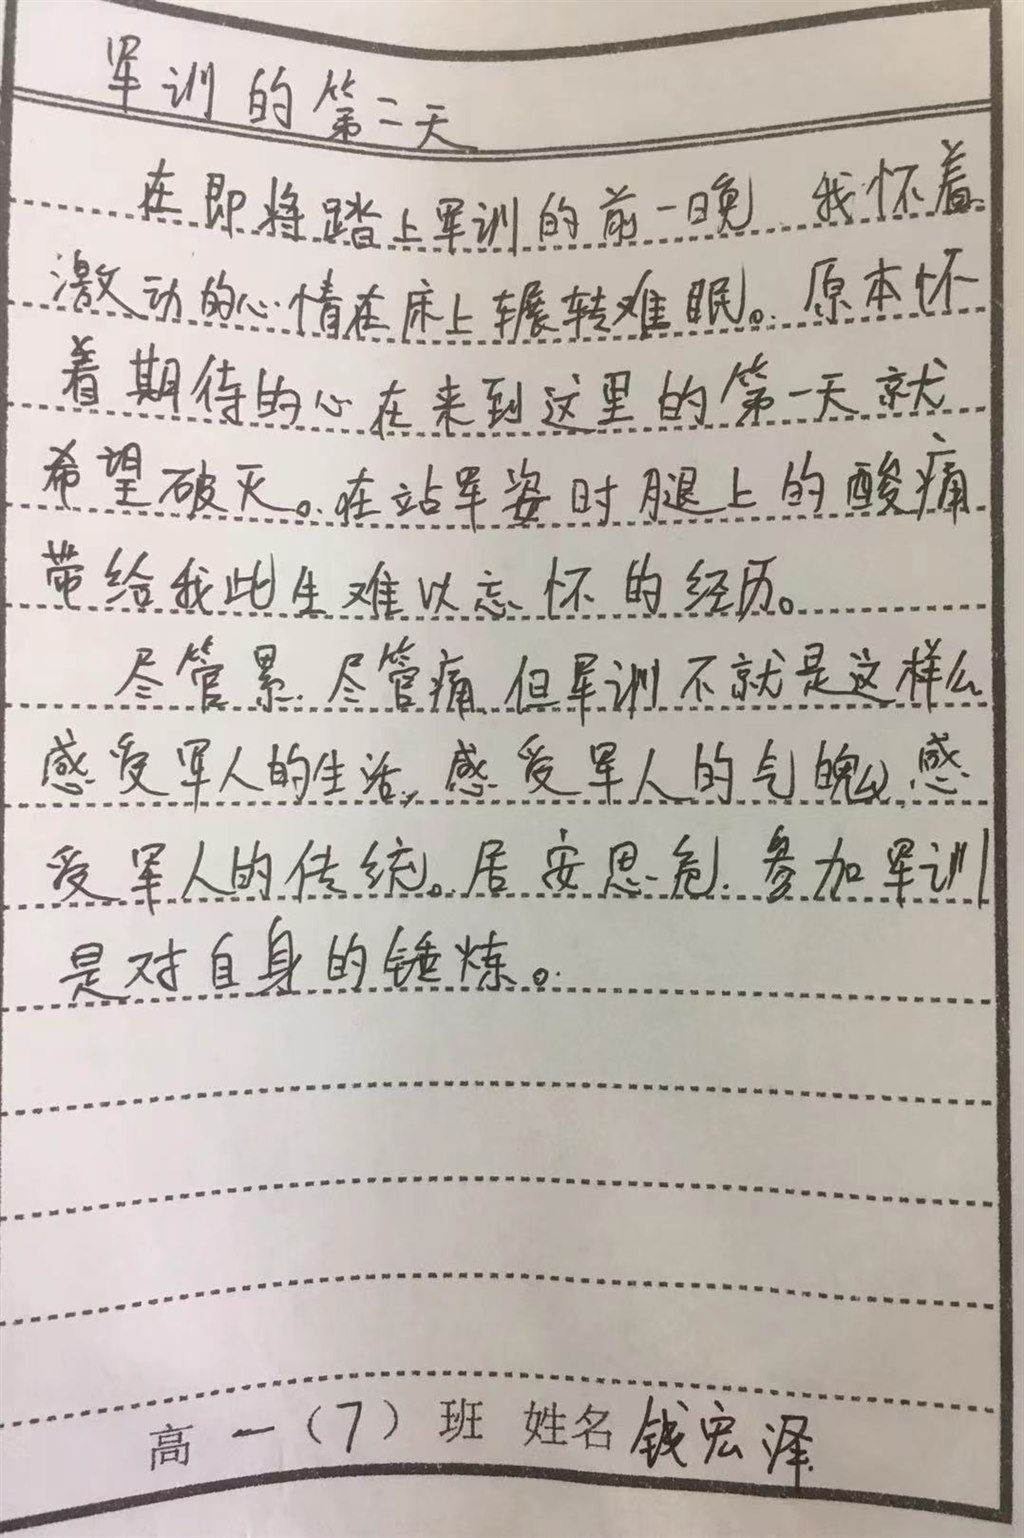 军训的第二天
在即将踏上军训的前一晚,我怀着
激动的心情在床上辗转难眠。原本怀
着期待的心在来到这里的第一天就
希望破灭。在站军姿时腿上的酸痛
带给我此生难以忘怀的经历。
尽管累,尽管痛,但军训不就是这样么
感受军人的生活,感受军人的气魄,感
受军人的传统。居安思危,参加军训
是对自身的锤炼。
高一(7)班 姓名 钱宏泽